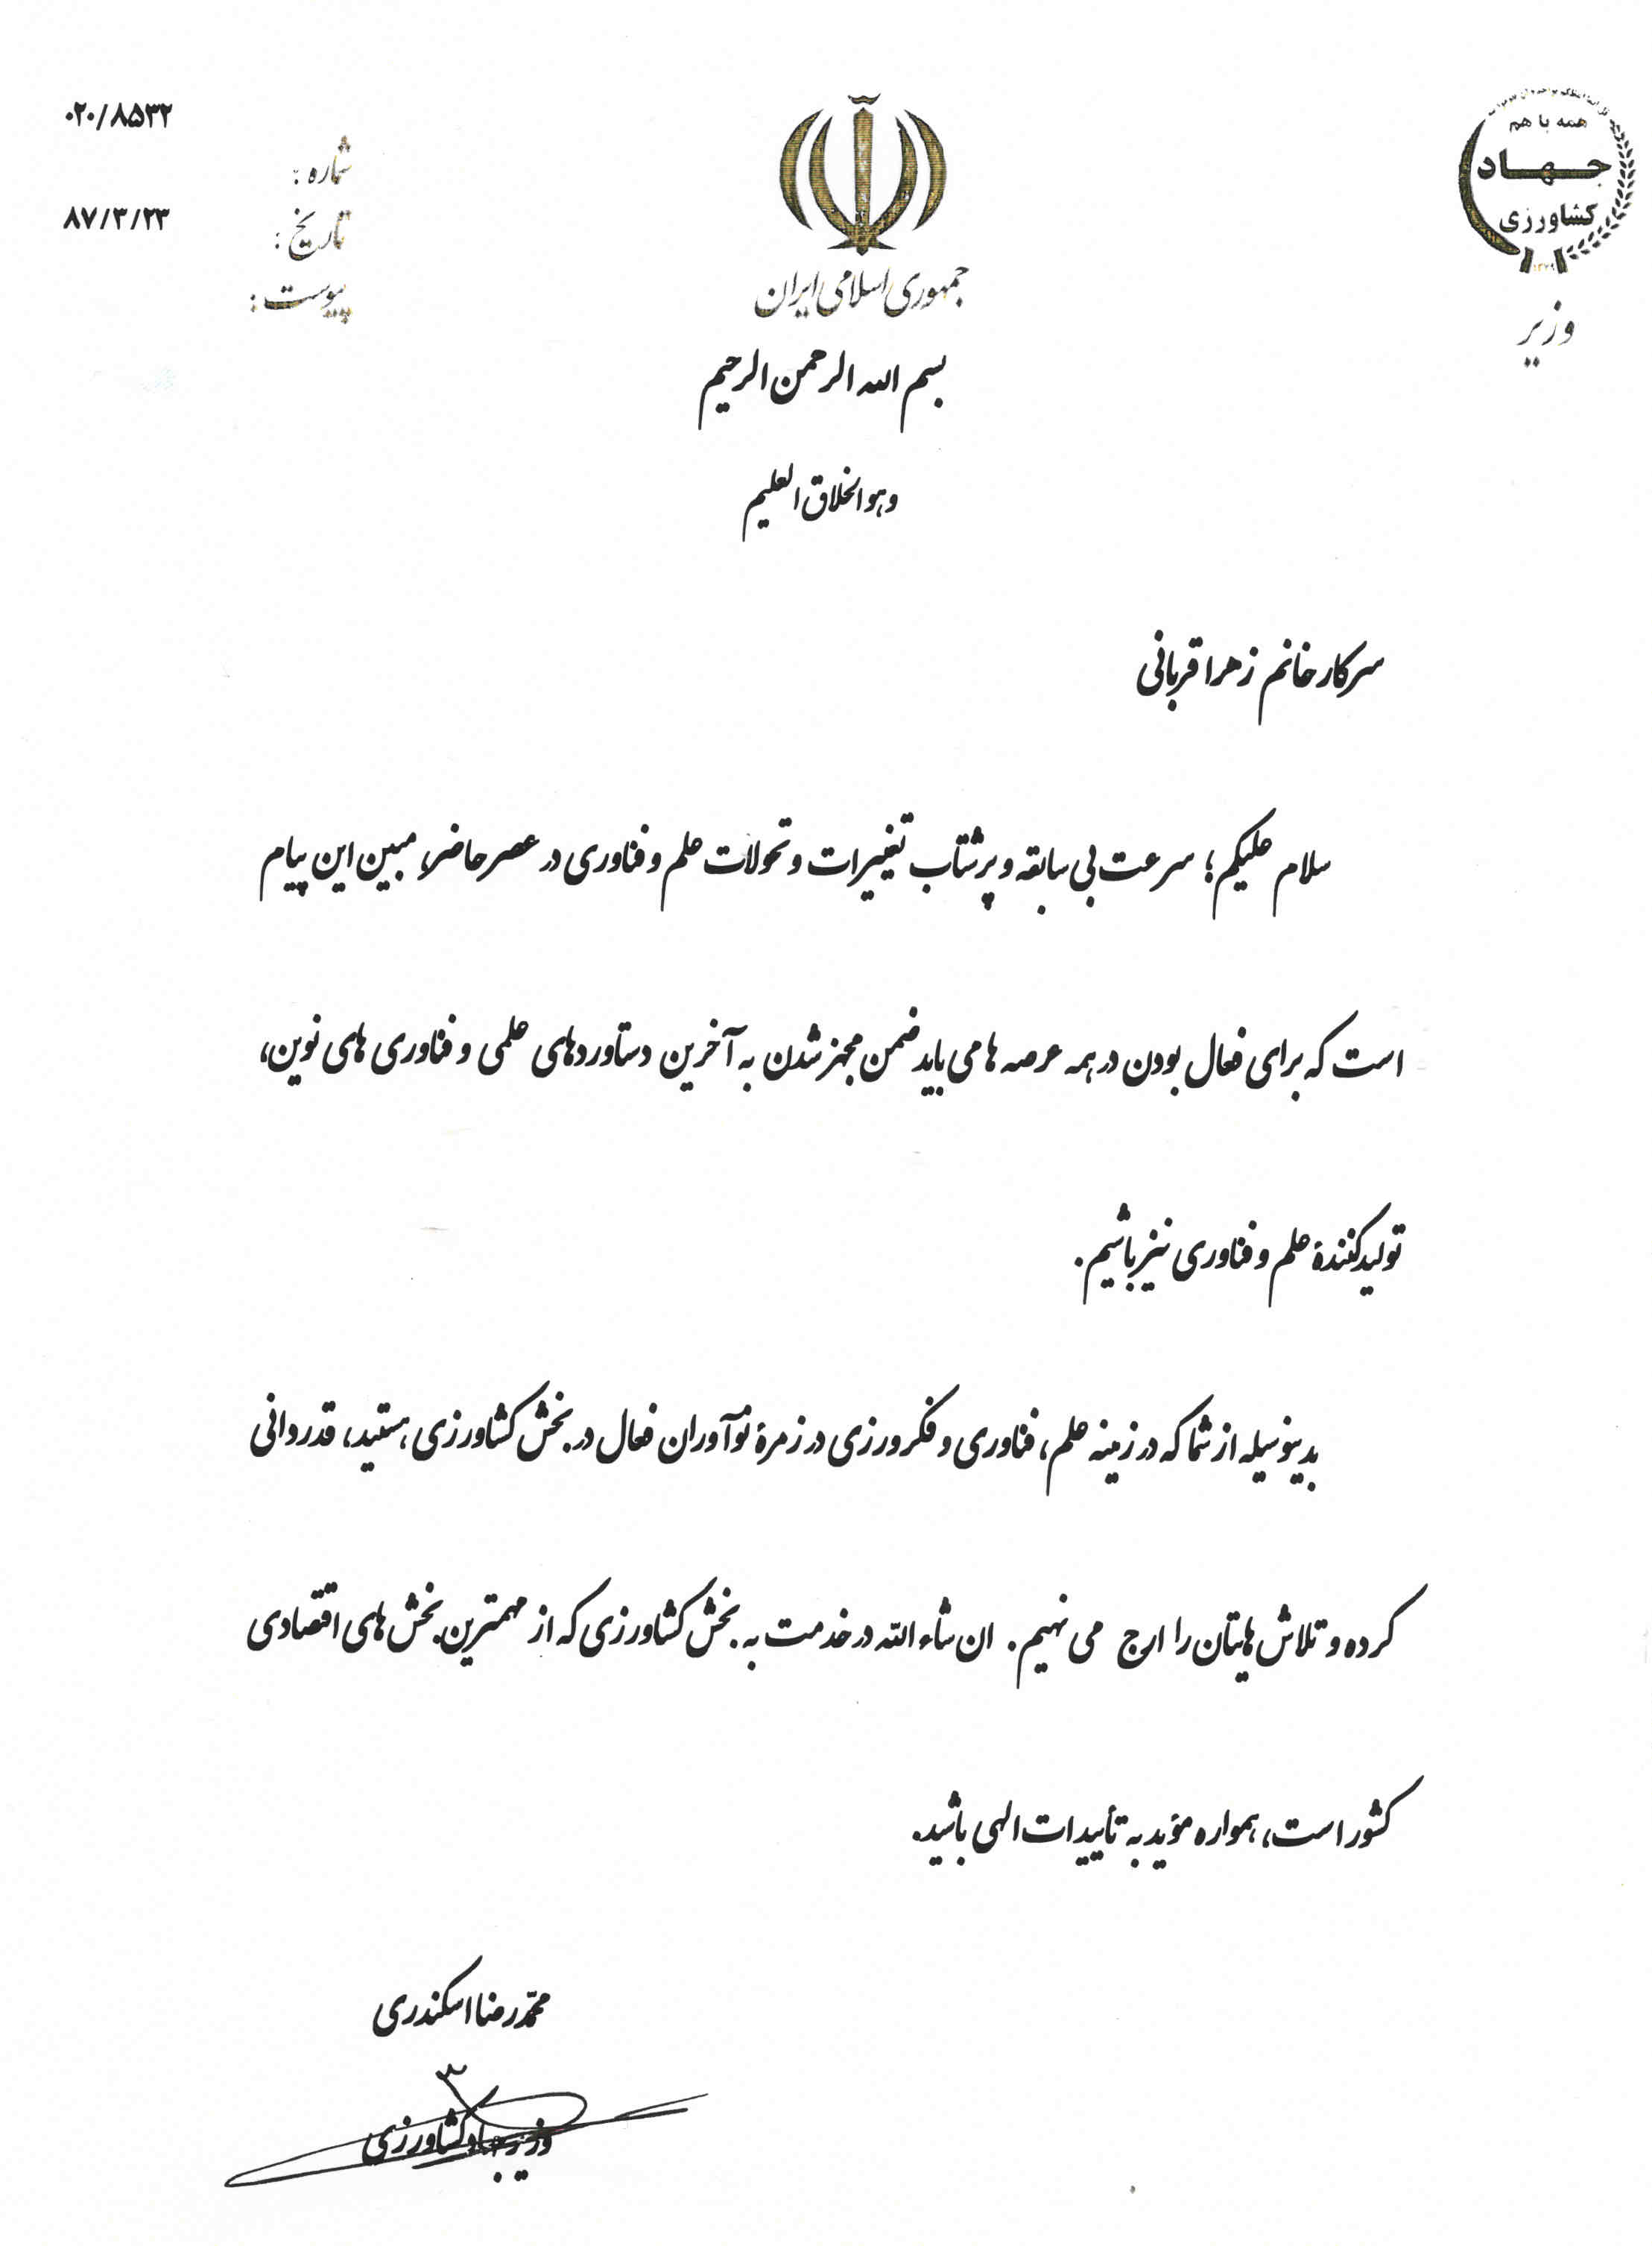 همه با هم
جهاد
کشاورزی
وزیر
جمهوری اسلامی ایران
۰۲۰/۸۵۳۲
شماره :
۸۷/۳/۲۳
تاریخ :
پیوست :
بسم الله الرحمن الرحیم
وهو الخلاق العلیم
سرکار خانم زهرا قربانی
سلام علیکم؛ سرعت بی سابقه و پرشتاب تغییرات و تحولات علم و فناوری در عصر حاضر، مبین این پیام
است که برای فعال بودن در همه عرصه ها می باید ضمن مجهز شدن به آخرین دستاوردهای علمی و فناوری های نوین،
تولید کنندهٔ علم و فناوری نیز باشیم.
بدینوسیله از شما که در زمینه علم، فناوری و فکرورزی در زمرهٔ نوآوران فعال در بخش کشاورزی، هستید، قدردانی
کرده و تلاش هایتان را ارج می نهیم. ان شاء الله در خدمت به بخش کشاورزی که از مهمترین بخش های اقتصادی
کشور است، همواره مؤید به تأییدات الهی باشید.
محمّدرضا اسکندری
وزیر جهاد کشاورزی